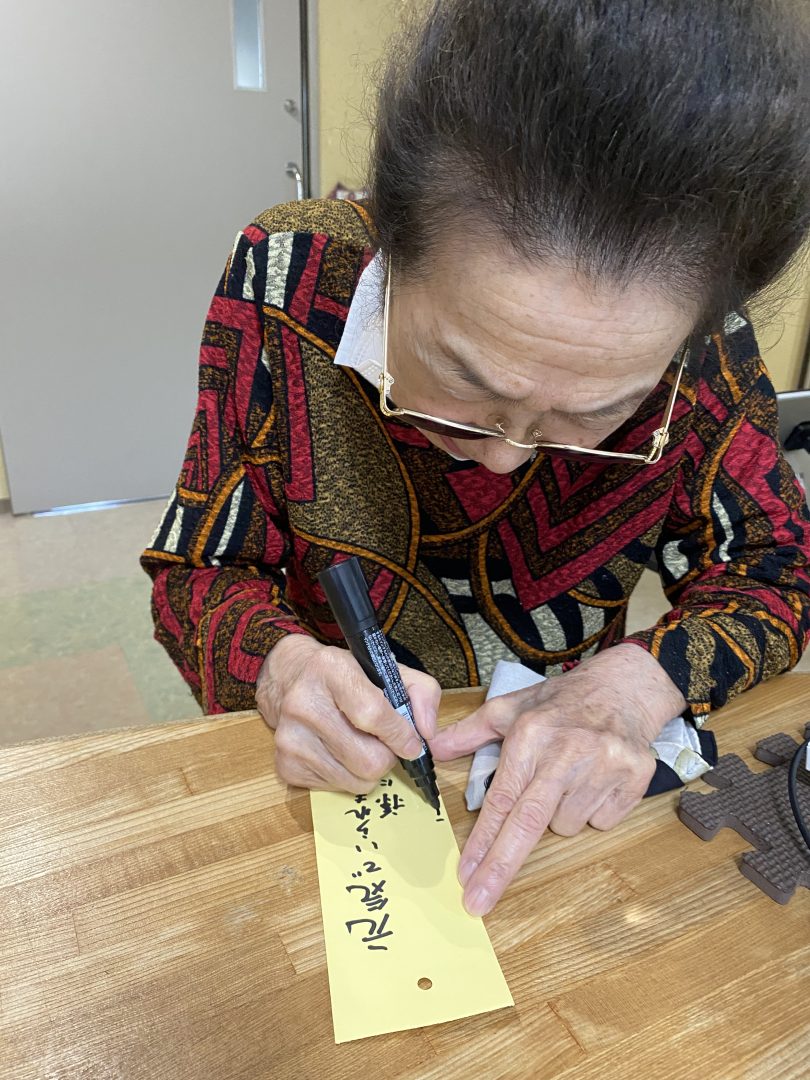 元気でいられま
様に